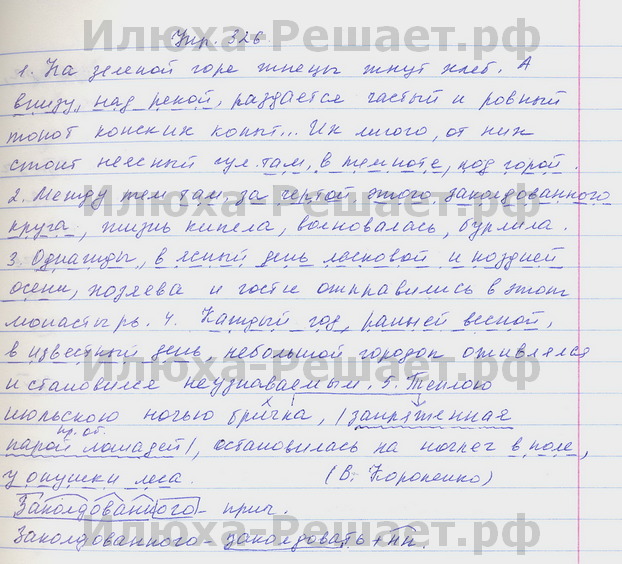 Упр. 326
1. На зеленой горе жнецы жнут хлеб. А
внизу, над рекой, раздается частый и ровный
топот конских копыт... Их много, от них
стоит неясный гул там, в темноте, под горой.
2. Между тем там, за чертой этого заколдованного
круга, жизнь кипела, волновалась, бурлила.
3. Однажды, в ясный день ласковой и поздней
осени, хозяева и гости отправились в этот
монастырь. 4. Каждый год, ранней весной,
в известный день, небольшой городок оживлялся
и становился неузнаваемым. 5. Теплою
июльскою ночью бричка, /запряженная
пр. об.
парой лошадей/, остановилась на ночлег в поле,
у опушки леса. (В. Короленко)
Заколдованного - прич.
Заколдованного - заколдовать + нн.
Илюха-Решает.рф
Илюха-Решает.рф
Илюха-Решает.рф
Илюха-Решает.рф